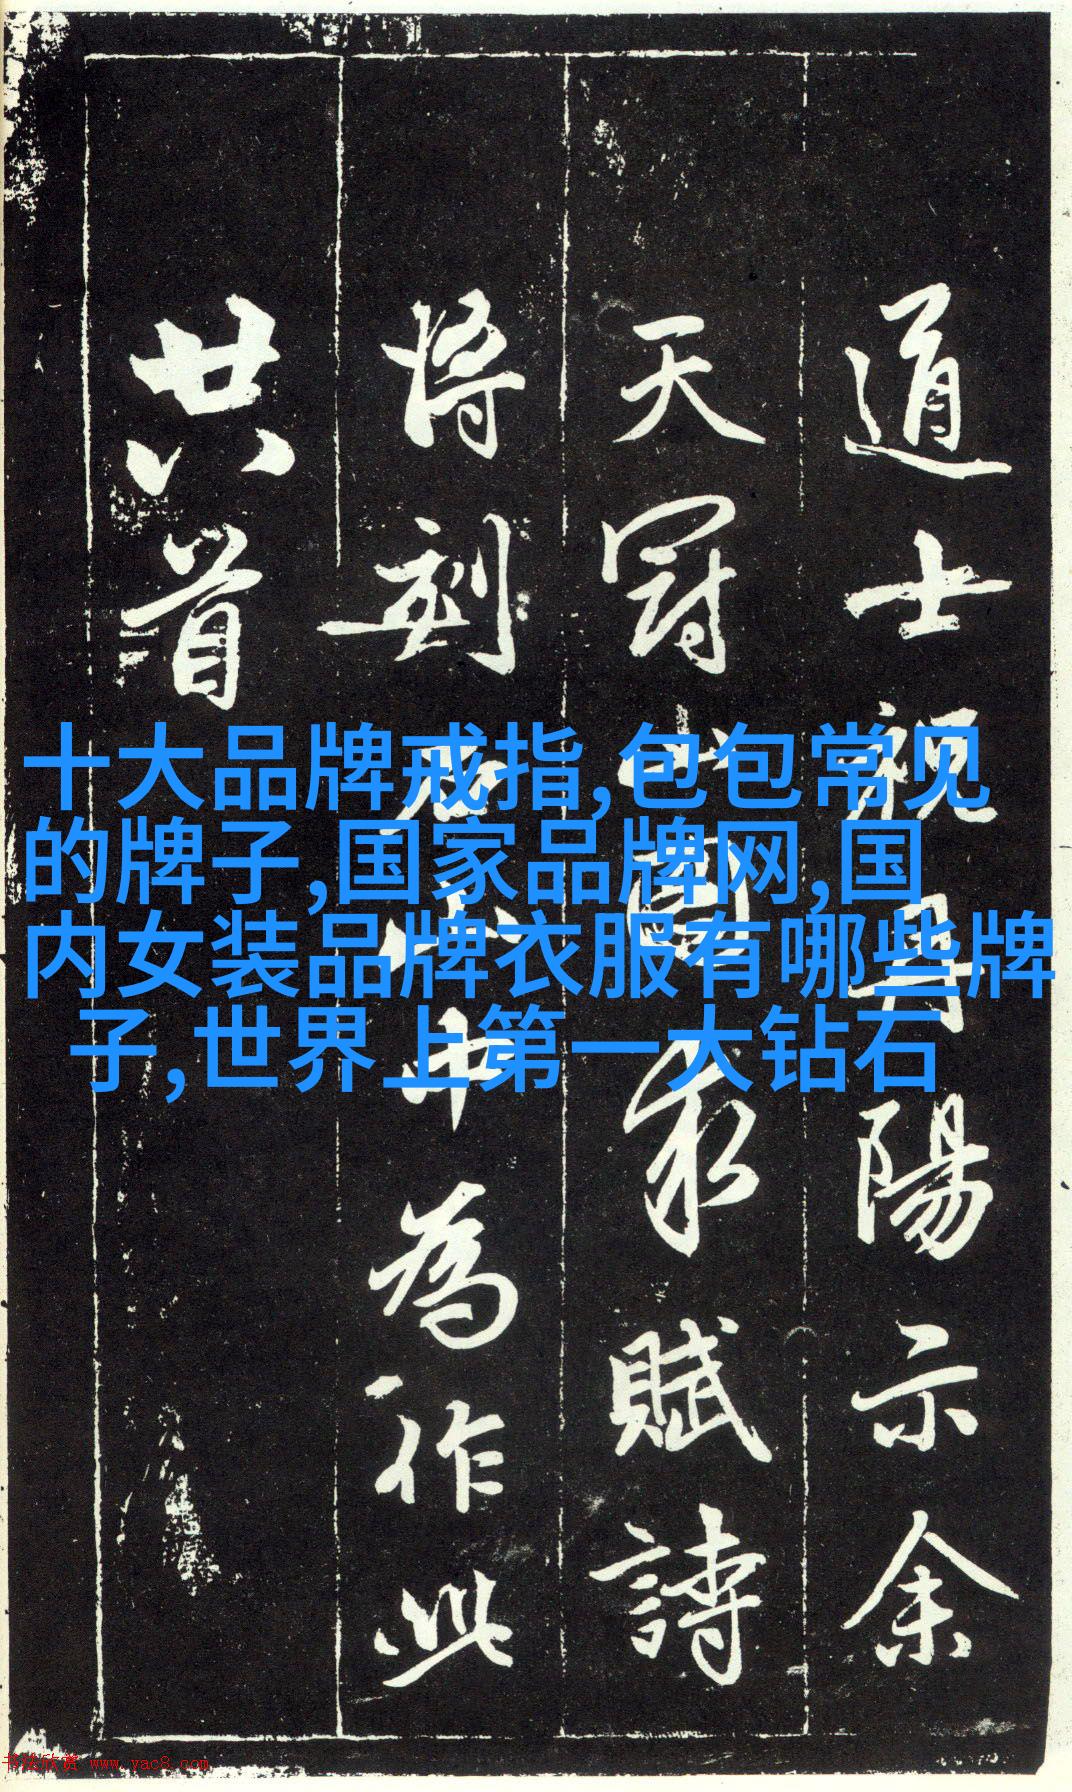 道士祝丹陽示余
天冠山圖求賦詩
將刻石山中為作此
廿八首
十大品牌戒指,包包常见
的牌子,国家品牌网,国
内女装品牌衣服有哪些牌
子,世界上第一大钻石
书法欣赏 www.yac8.com